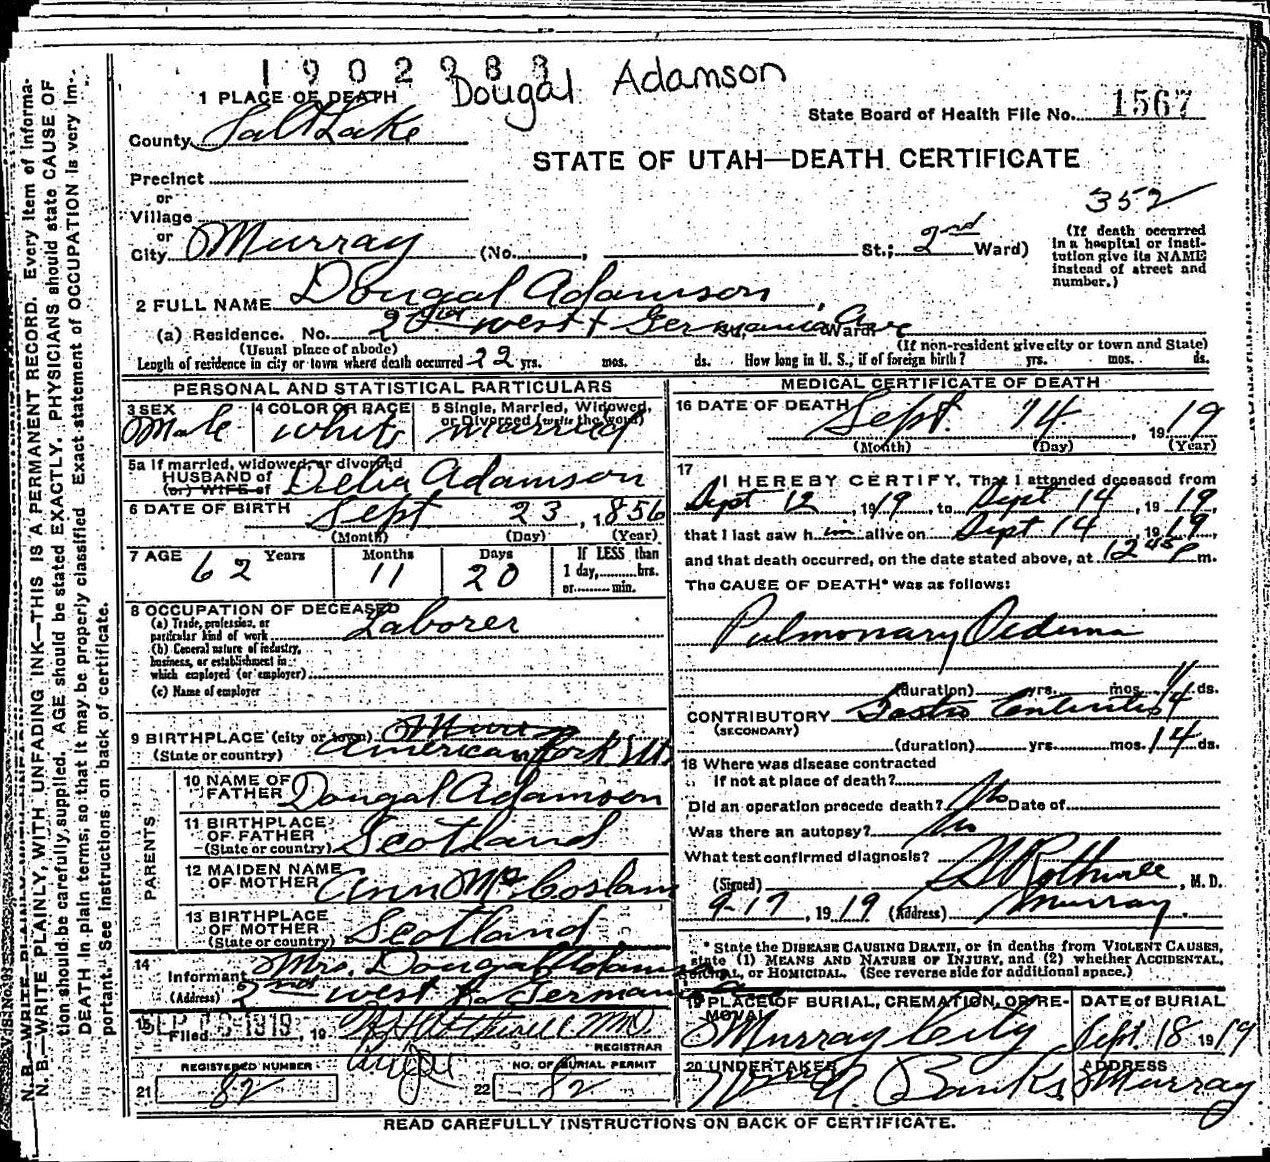 1902983
Dougal Adamson
1 PLACE OF DEATH
State Board of Health File No. 1567
County Salt Lake
STATE OF UTAH—DEATH CERTIFICATE
Precinct
or
Village
352
or
City Murray (No. , St.; 2nd Ward)
(If death occurred in a hospital or insti-
tution give its NAME
instead of street and
number.)
2 FULL NAME Dougal Adamson,
(a) Residence. No. 2nd west + Germania Ave Ward
(Usual place of abode) (If non-resident give city or town and State)
Length of residence in city or town where death occurred 22 yrs. mos. ds. How long in U. S., if of foreign birth? yrs. mos. ds.
PERSONAL AND STATISTICAL PARTICULARS
3 SEX Male
4 COLOR OR RACE White
5 Single, Married, Widowed,
or Divorced (write the word) Married
5a If married, widowed, or divorced
HUSBAND of
(or) WIFE of Delia Adamson
6 DATE OF BIRTH Sept 23, 1856
(Month) (Day) (Year)
7 AGE 62 Years 11 Months 20 Days
If LESS than
1 day, hrs.
or min.
8 OCCUPATION OF DECEASED
(a) Trade, profession, or
particular kind of work Laborer
(b) General nature of industry,
business, or establishment in
which employed (or employer)
(c) Name of employer
9 BIRTHPLACE (city or town)
(State or country) American Fork Ut
PARENTS
10 NAME OF
FATHER Dougal Adamson
11 BIRTHPLACE
OF FATHER
(State or country) Scotland
12 MAIDEN NAME
OF MOTHER Ann Mc Coslam
13 BIRTHPLACE
OF MOTHER
(State or country) Scotland
14
Informant Mrs. Dougal Adamson
(Address) 2nd west + Germania
15
Filed 1919, 19
REGISTRAR
REGISTERED NUMBER
21 82
NO. OF BURIAL PERMIT
22 82
MEDICAL CERTIFICATE OF DEATH
16 DATE OF DEATH
Sept. 14, 1919
(Month) (Day) (Year)
17
I HEREBY CERTIFY, That I attended deceased from
Sept 12, 1919, to Sept 14, 1919,
that I last saw h im alive on Sept 14, 1919
and that death occurred, on the date stated above, at 12 45 P m.
The CAUSE OF DEATH* was as follows:
Pulmonary Oedema
(duration) yrs. mos. ds.
CONTRIBUTORY Gastro Enteritis
(SECONDARY)
(duration) yrs. mos. 14 ds.
18 Where was disease contracted
if not at place of death?
Did an operation precede death? No Date of
Was there an autopsy? No
What test confirmed diagnosis?
(Signed) Rothwell, M. D.
9-17, 1919 (Address) Murray.
* State the DISEASE CAUSING DEATH, or in deaths from VIOLENT CAUSES,
state (1) MEANS AND NATURE OF INJURY, and (2) whether ACCIDENTAL,
SUICIDAL, or HOMICIDAL. (See reverse side for additional space.)
19 PLACE OF BURIAL, CREMATION, OR RE-
MOVAL
Murray City
DATE OF BURIAL
Sept. 18 1919
20 UNDERTAKER
Banks
ADDRESS
Murray
READ CAREFULLY INSTRUCTIONS ON BACK OF CERTIFICATE.
N. B.—WRITE PLAINLY, WITH UNFADING INK—THIS IS A PERMANENT RECORD. Every item of informa-
tion should be carefully supplied. AGE should be stated EXACTLY. PHYSICIANS should state CAUSE OF
DEATH in plain terms, so that it may be properly classified. Exact statement of OCCUPATION is very im-
portant. See instructions on back of certificate.